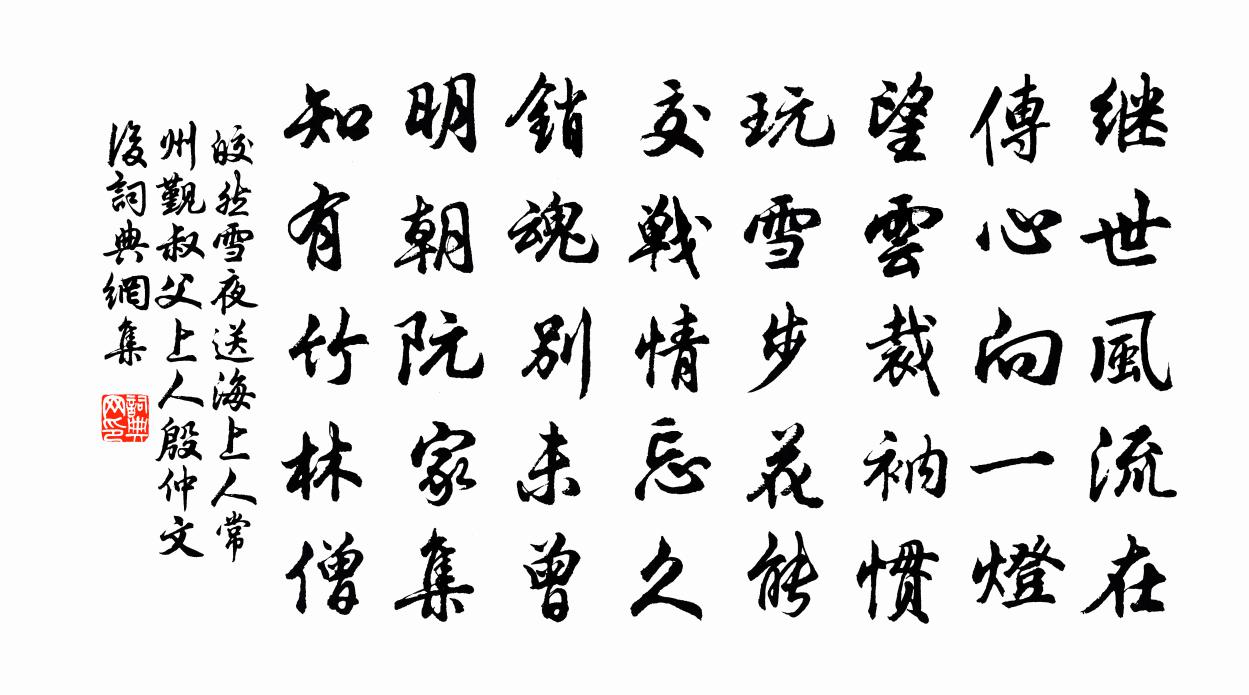 继世風流在
傳心向一燈
望雲裁衲慣
玩雪步花能
交戰情忘久
銷魂別未曾
明朝阮家集
知有竹林僧
皎然雪夜送海上人常
州覲叔父上人殷仲文
後詞典網集
詞典
网印